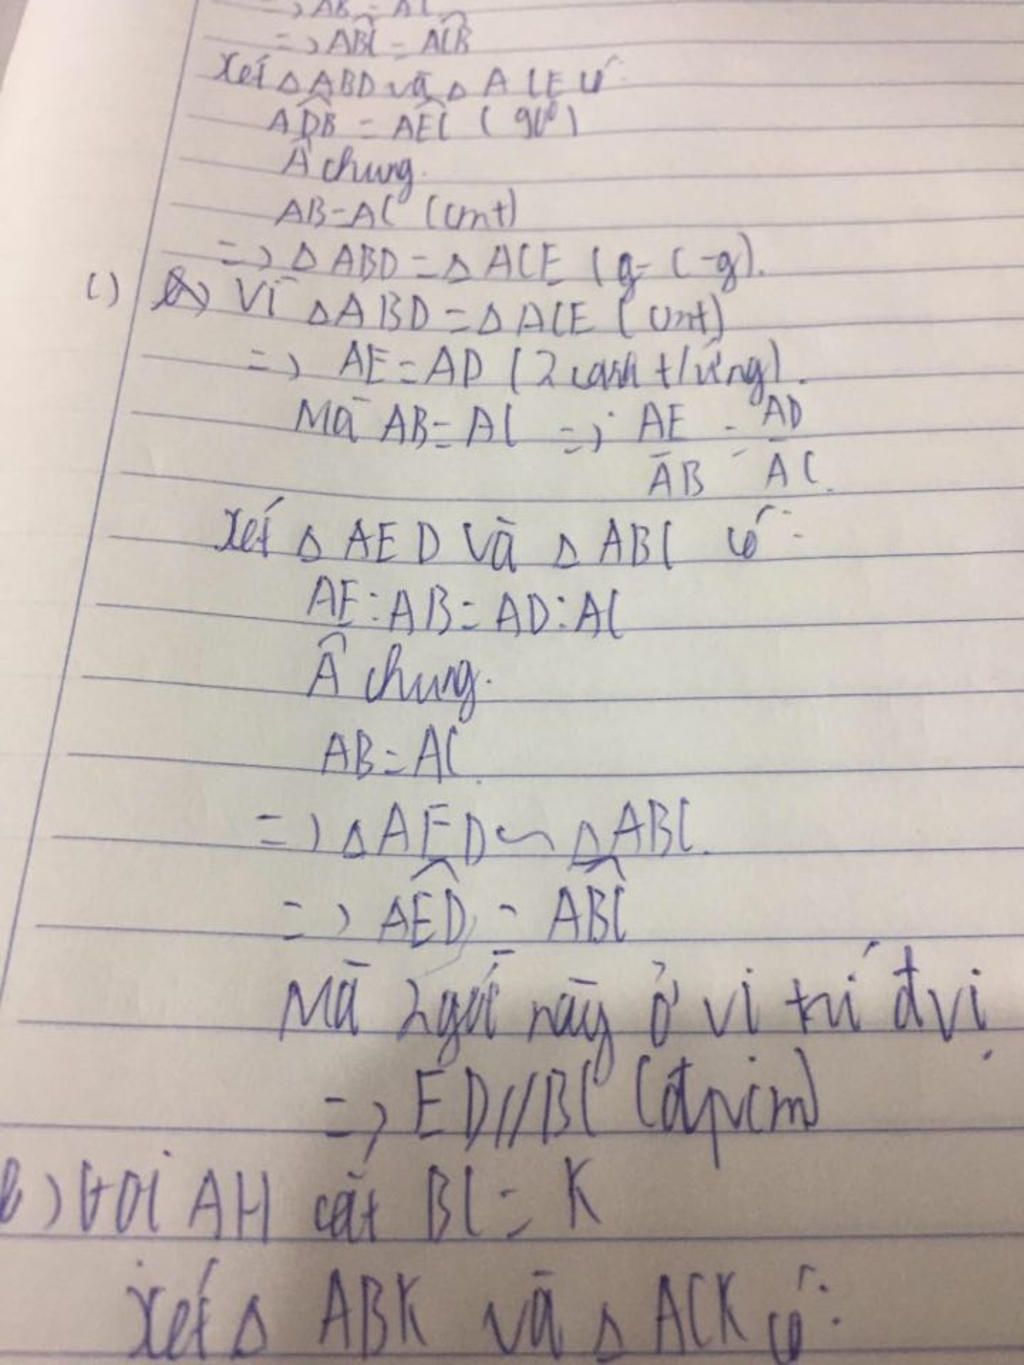 => AB = AC
=> ABC = ACB
Xét △ ABD và △ ACE có:
ADB = AEC ( 90⁰)
Â chung.
AB=AC (cmt)
=> △ ABD = △ ACE (g-c-g).
c) Vì △ABD = △ACE (cmt)
=> AE = AD (2 cạnh t/ứng).
Mà AB = AC => AE/AB = AD/AC.
Xét △ AED và △ ABC có:
AE:AB = AD:AC
Â chung.
AB=AC.
=> △AED ∽ △ABC.
=> AED = ABC
Mà 2 góc này ở vị trí đvị
=> ED//BC (đpcm)
b) Gọi AH cắt BC = K
Xét △ ABK và △ ACK có: